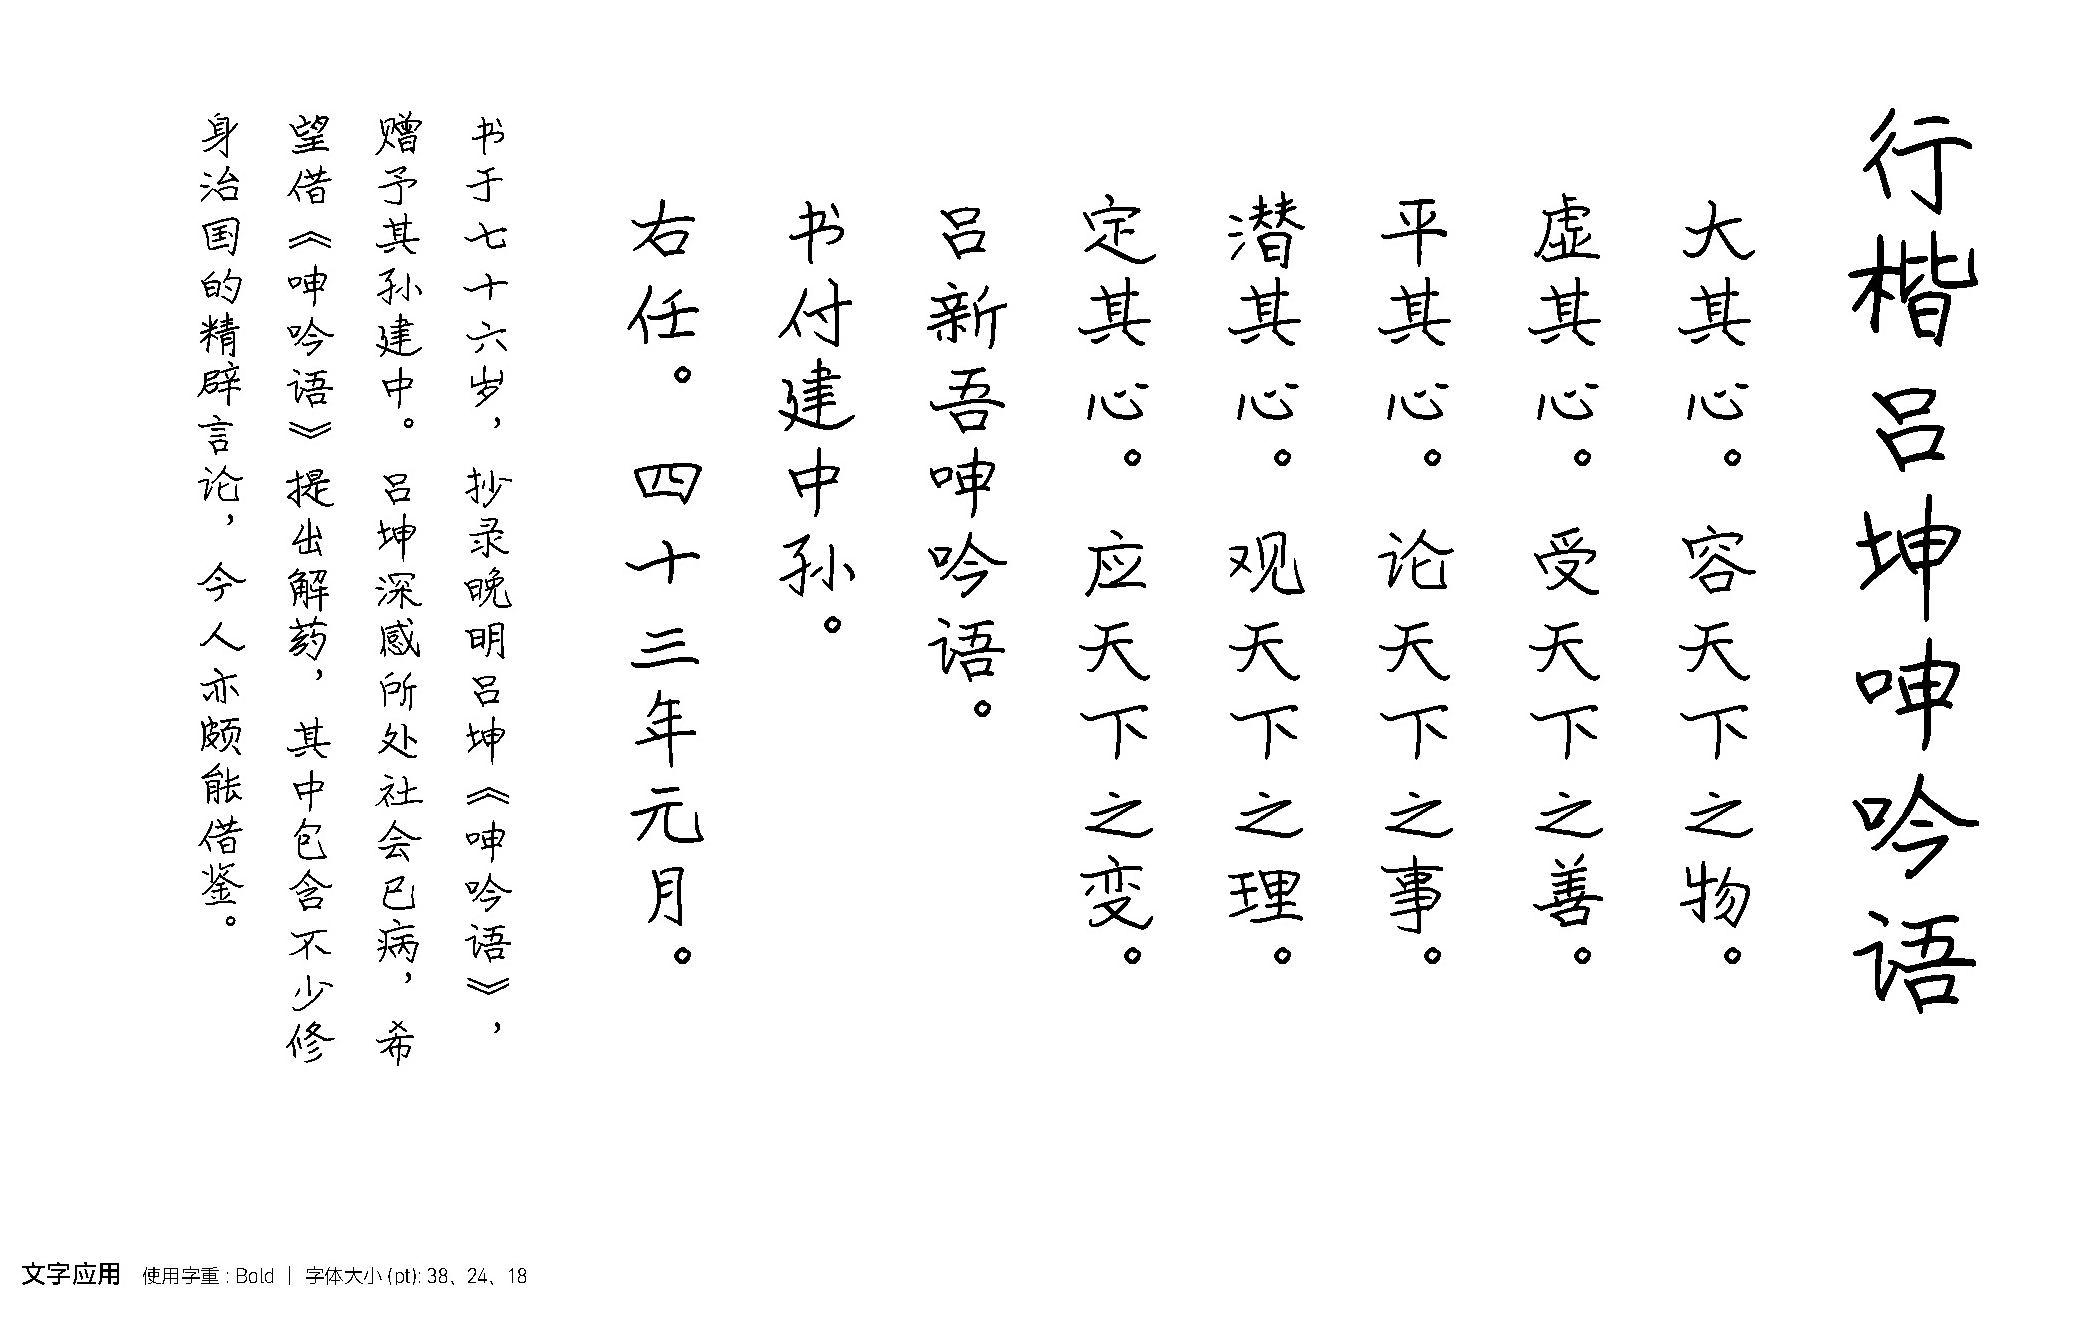 行楷吕坤呻吟语
大其心。容天下之物。
虚其心。受天下之善。
平其心。论天下之事。
潜其心。观天下之理。
定其心。应天下之变。
吕新吾呻吟语。
书付建中孙。
右任。四十三年元月。
书于七十六岁，抄录晚明吕坤《呻吟语》，
赠予其孙建中。吕坤深感所处社会已病，希
望借《呻吟语》提出解药，其中包含不少修
身治国的精辟言论，今人亦颇能借鉴。
文字应用 使用字重 : Bold | 字体大小 (pt): 38、24、18